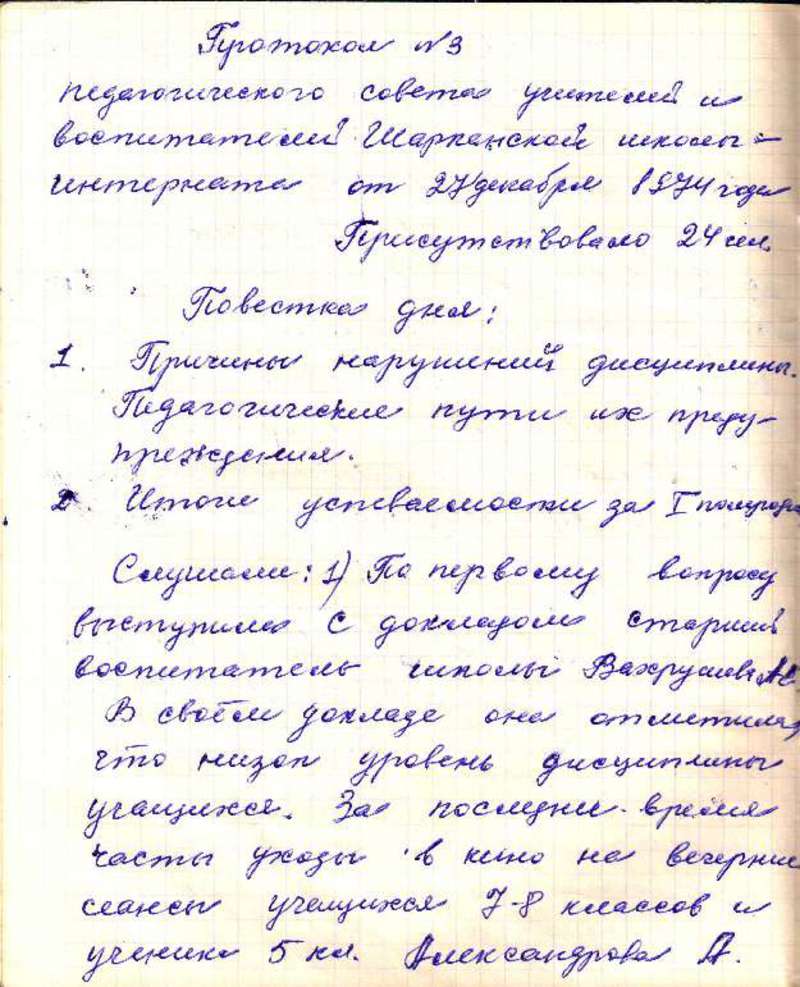 Протокол №3
педагогического совета учителей и
воспитателей Шарканской школы-
интерната от 27 декабря 1974 года
Присутствовало 24 чел.
Повестка дня:
1. Причины нарушений дисциплины.
Педагогические пути их преду-
преждения.
2. Итоги успеваемости за I полугодие
Слушали: 1) По первому вопросу
выступила с докладом старший
воспитатель школы Вахрушева
В своём докладе она отметила,
что низок уровень дисциплины
учащихся. За последнее время
часты уходы в кино на вечерние
сеансы учащихся 7-8 классов и
ученика 5 кл. Александрова А.